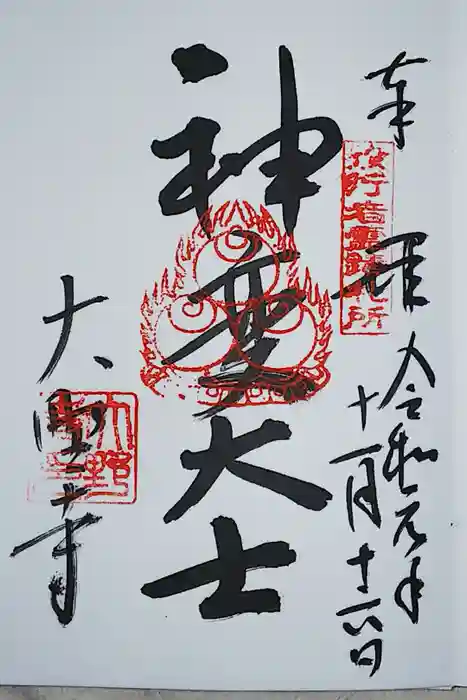 奉拝
役行者霊蹟札所
令和元年
十一月十六日
神変大士
大野寺